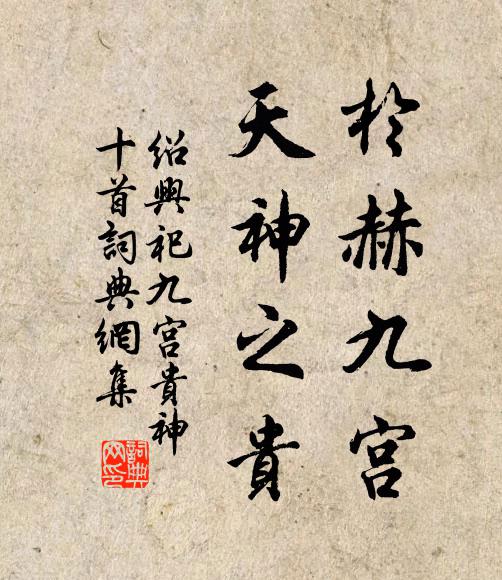 於赫九宮
天神之貴
紹興祀九宮貴神
十首詞典網集
詞典
网印